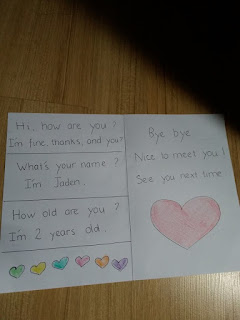 Hi, how are you?
I'm fine, thanks, and you?
What's your name?
I'm Jaden.
How old are you?
I'm 2 years old.
Bye bye
Nice to meet you!
See you next time!